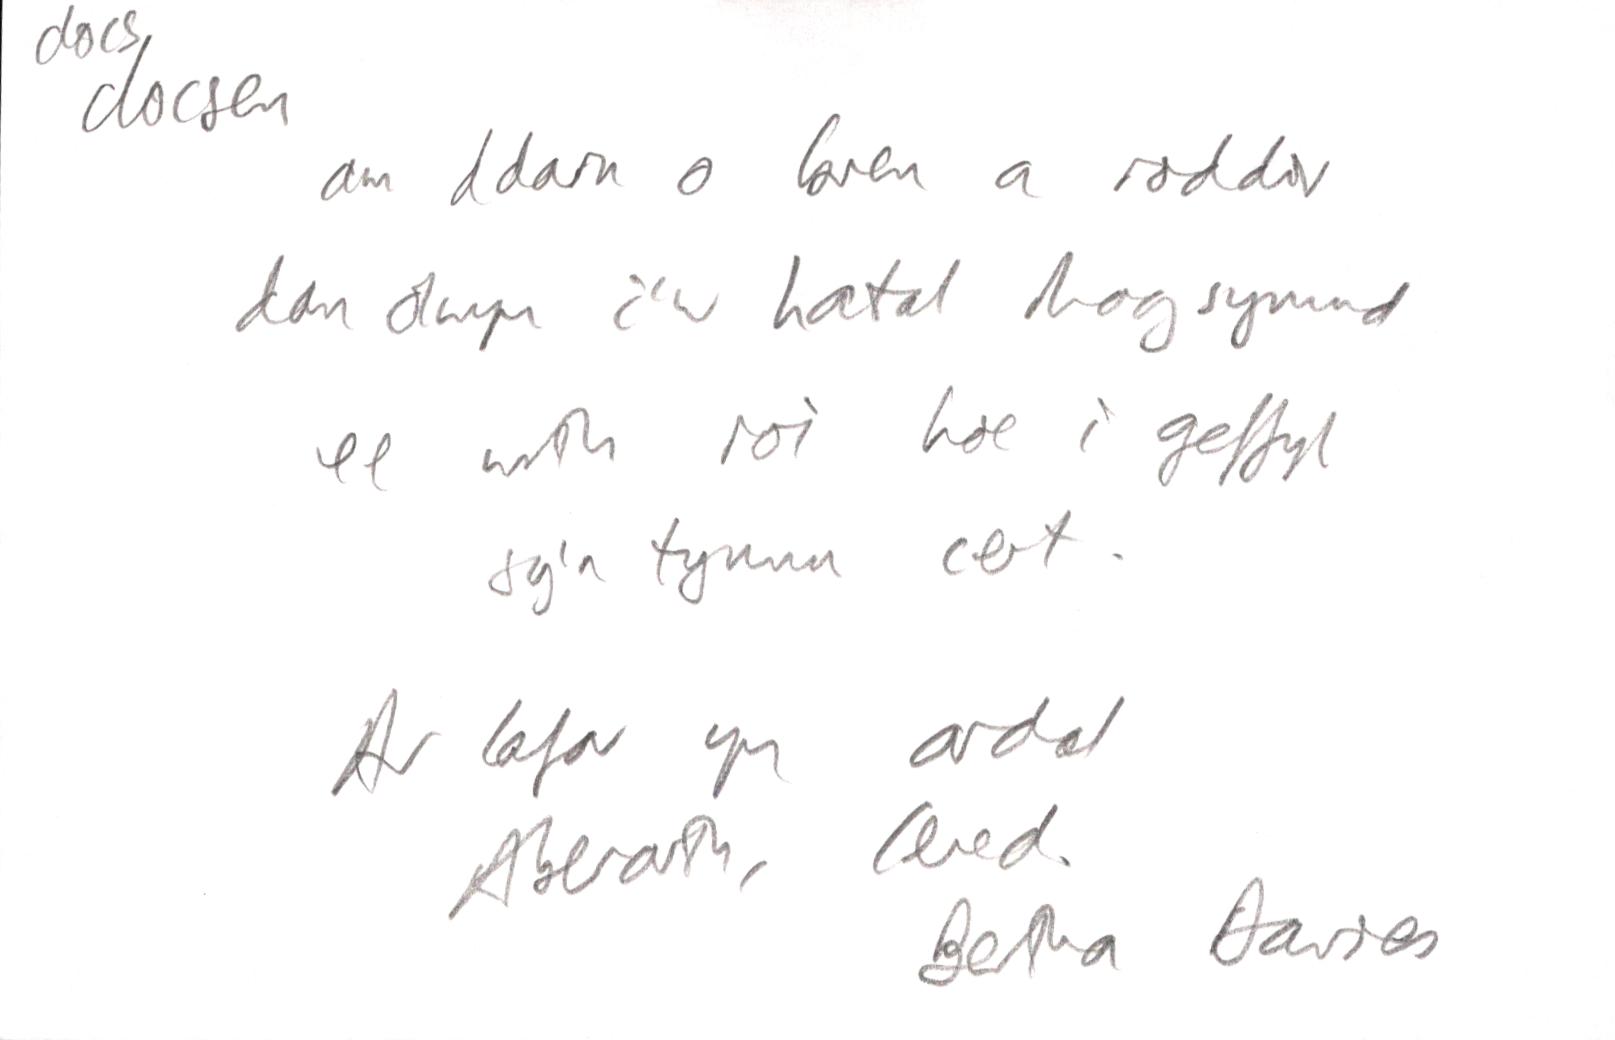 docs,
docsen
am ddarn o bren a roddir
dan olwyn i'w hatal rhag symud
ee wrth roi hoe i geffyl
sy'n tynnu cert.
Ar lafar yn ardal
Aberarth, Cered.
Bertha Davies